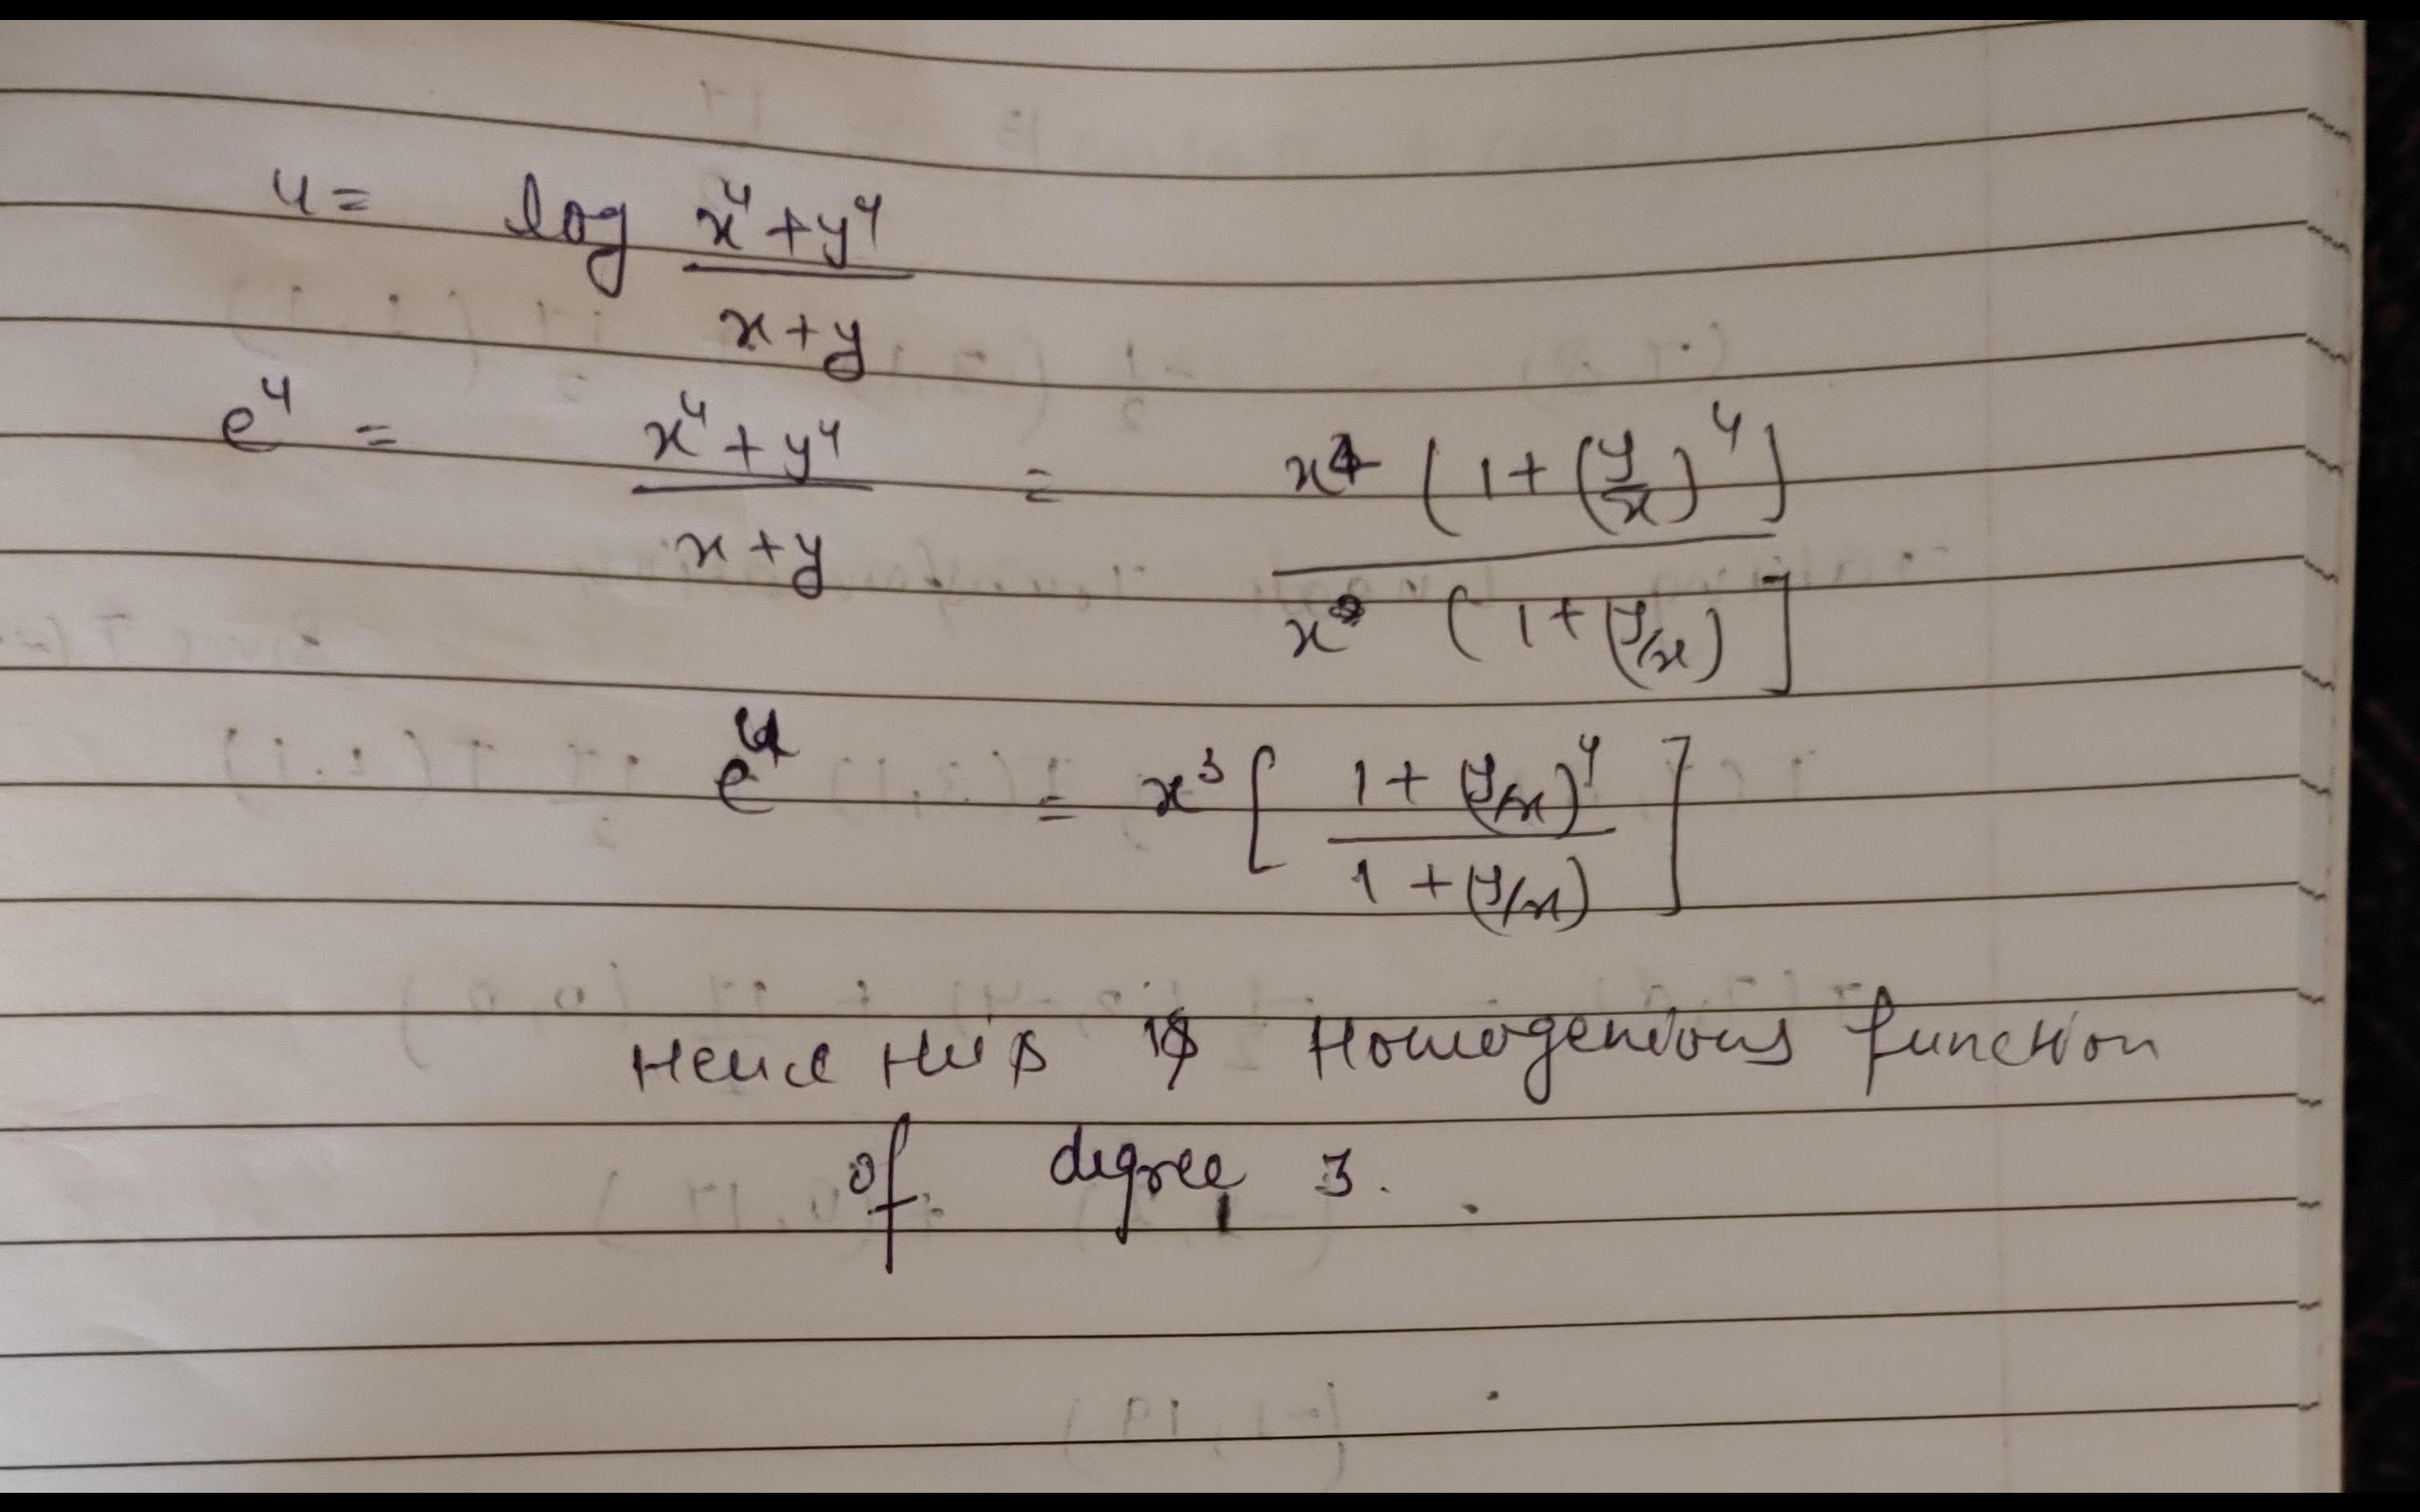 u = log x⁴+y⁴ / x+y
eᵘ = x⁴+y⁴ / x+y = x⁴ (1+(y/x)⁴] / x (1+(y/x)]
eᵘ = x³ [ 1+(y/x)⁴ / 1+(y/x) ]
Hence this is Homogenious function
of degree 3.